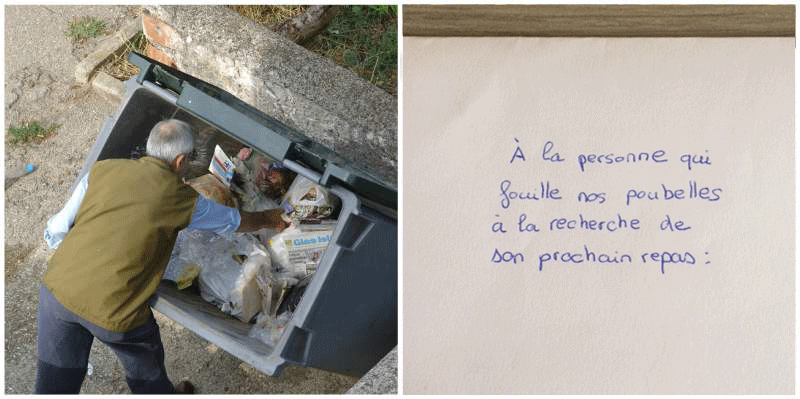 Glas Ist
À la personne qui
fouille nos poubelles
à la recherche de
son prochain repas :